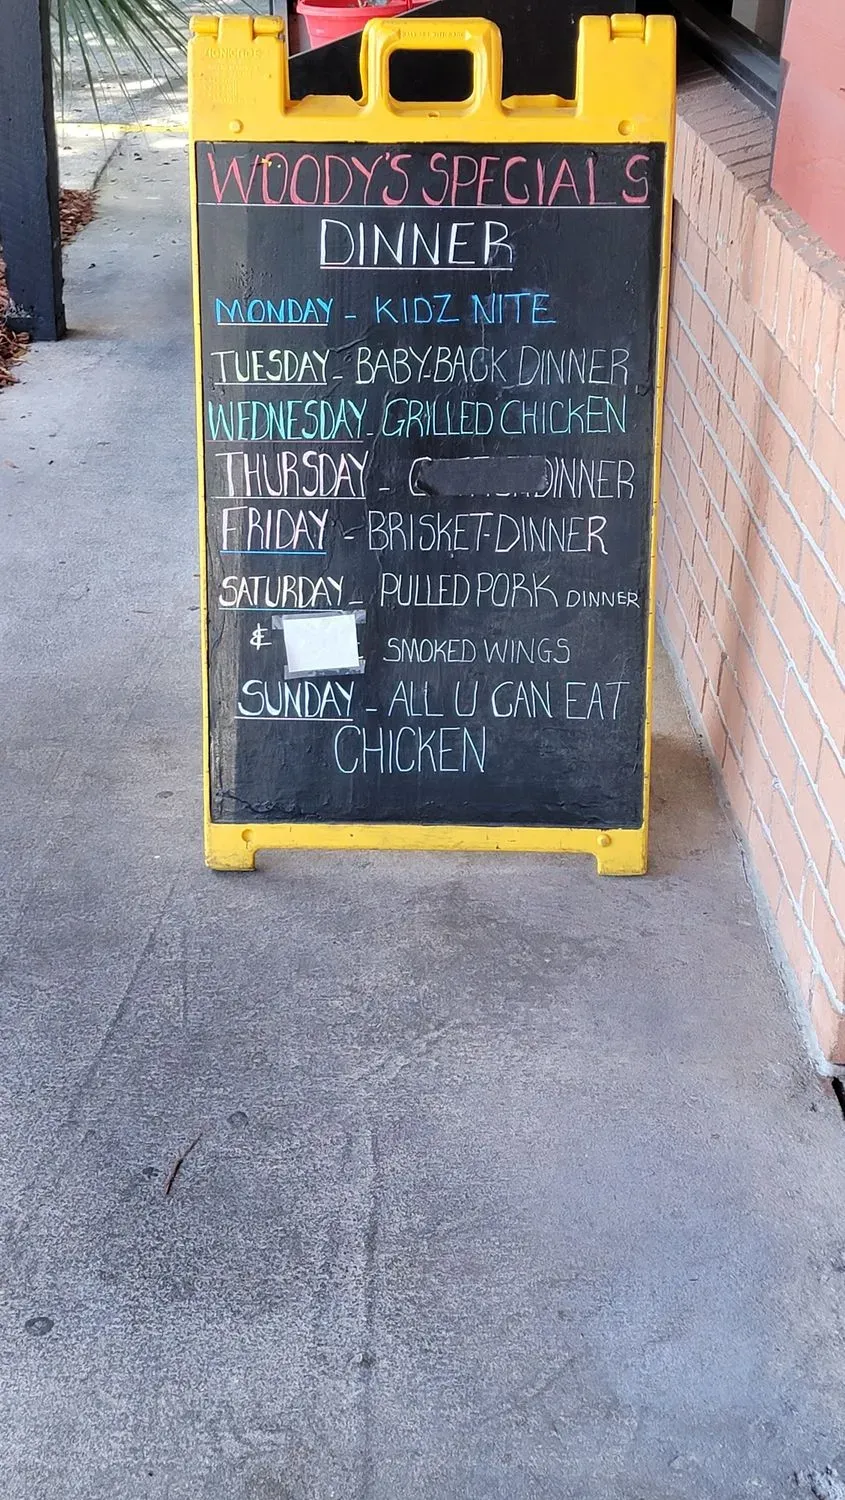 WOODY'S SPECIALS
DINNER
MONDAY - KIDZ NITE
TUESDAY - BABY-BACK DINNER
WEDNESDAY - GRILLED CHICKEN
THURSDAY - DINNER
FRIDAY - BRISKET-DINNER
SATURDAY - PULLED PORK DINNER
& SMOKED WINGS
SUNDAY - ALL U CAN EAT
CHICKEN